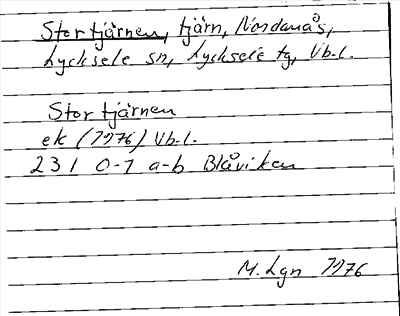 Stortjärnen, tjärn, Nordanås,
Lycksele sn, Lycksele tg, Vb-l.
Stortjärnen
ek (1976) Vb-l.
231 0-1 a-b Blåviken
M. Lgn 1976